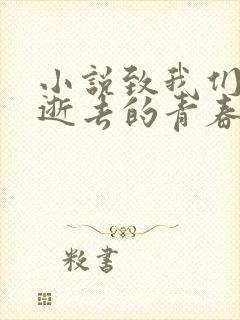 小說致我们
逝去的青春
粀書